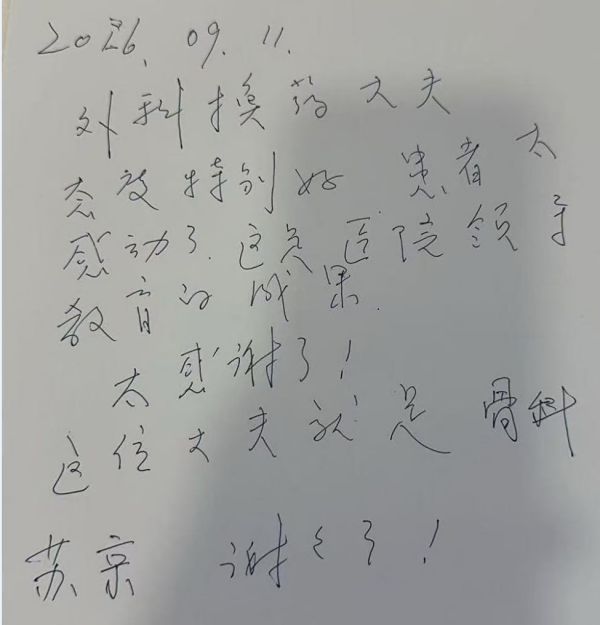 2026. 09. 11.
外科换药大夫
态度特别好 患者太
感动了.这是医院领导
教育的成果.
太感谢了!
这位大夫就是骨科
苏京 谢々了!